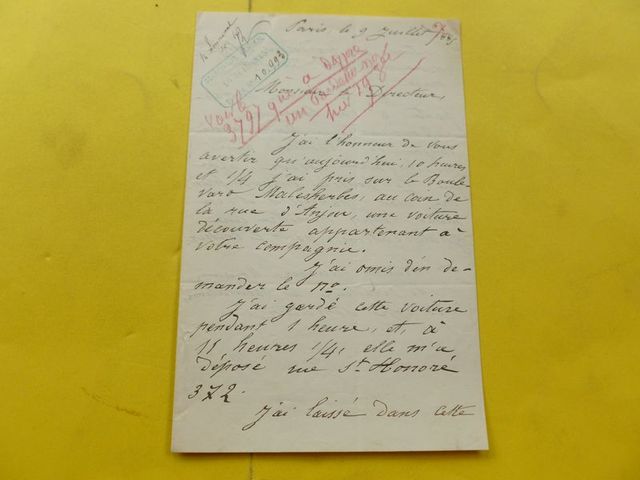 Paris le 9 Juillet 
10,993
Monsieur le Directeur,
Voir le
3797 qui a
J'ai l'honneur de vous
avertir qu'aujourd'hui, 10 heures
et 1/4 j'ai pris sur le Boule
vard Malesherbes, au coin de
la rue d'Anjou, une voiture
découverte appartenant à
votre compagnie.
J'ai omis d'en de-
mander le No.
J'ai gardé cette voiture
pendant 1 heure, et, à
11 heures 1/4, elle m'a
déposé rue St Honoré
372.
J'ai laissé dans cette